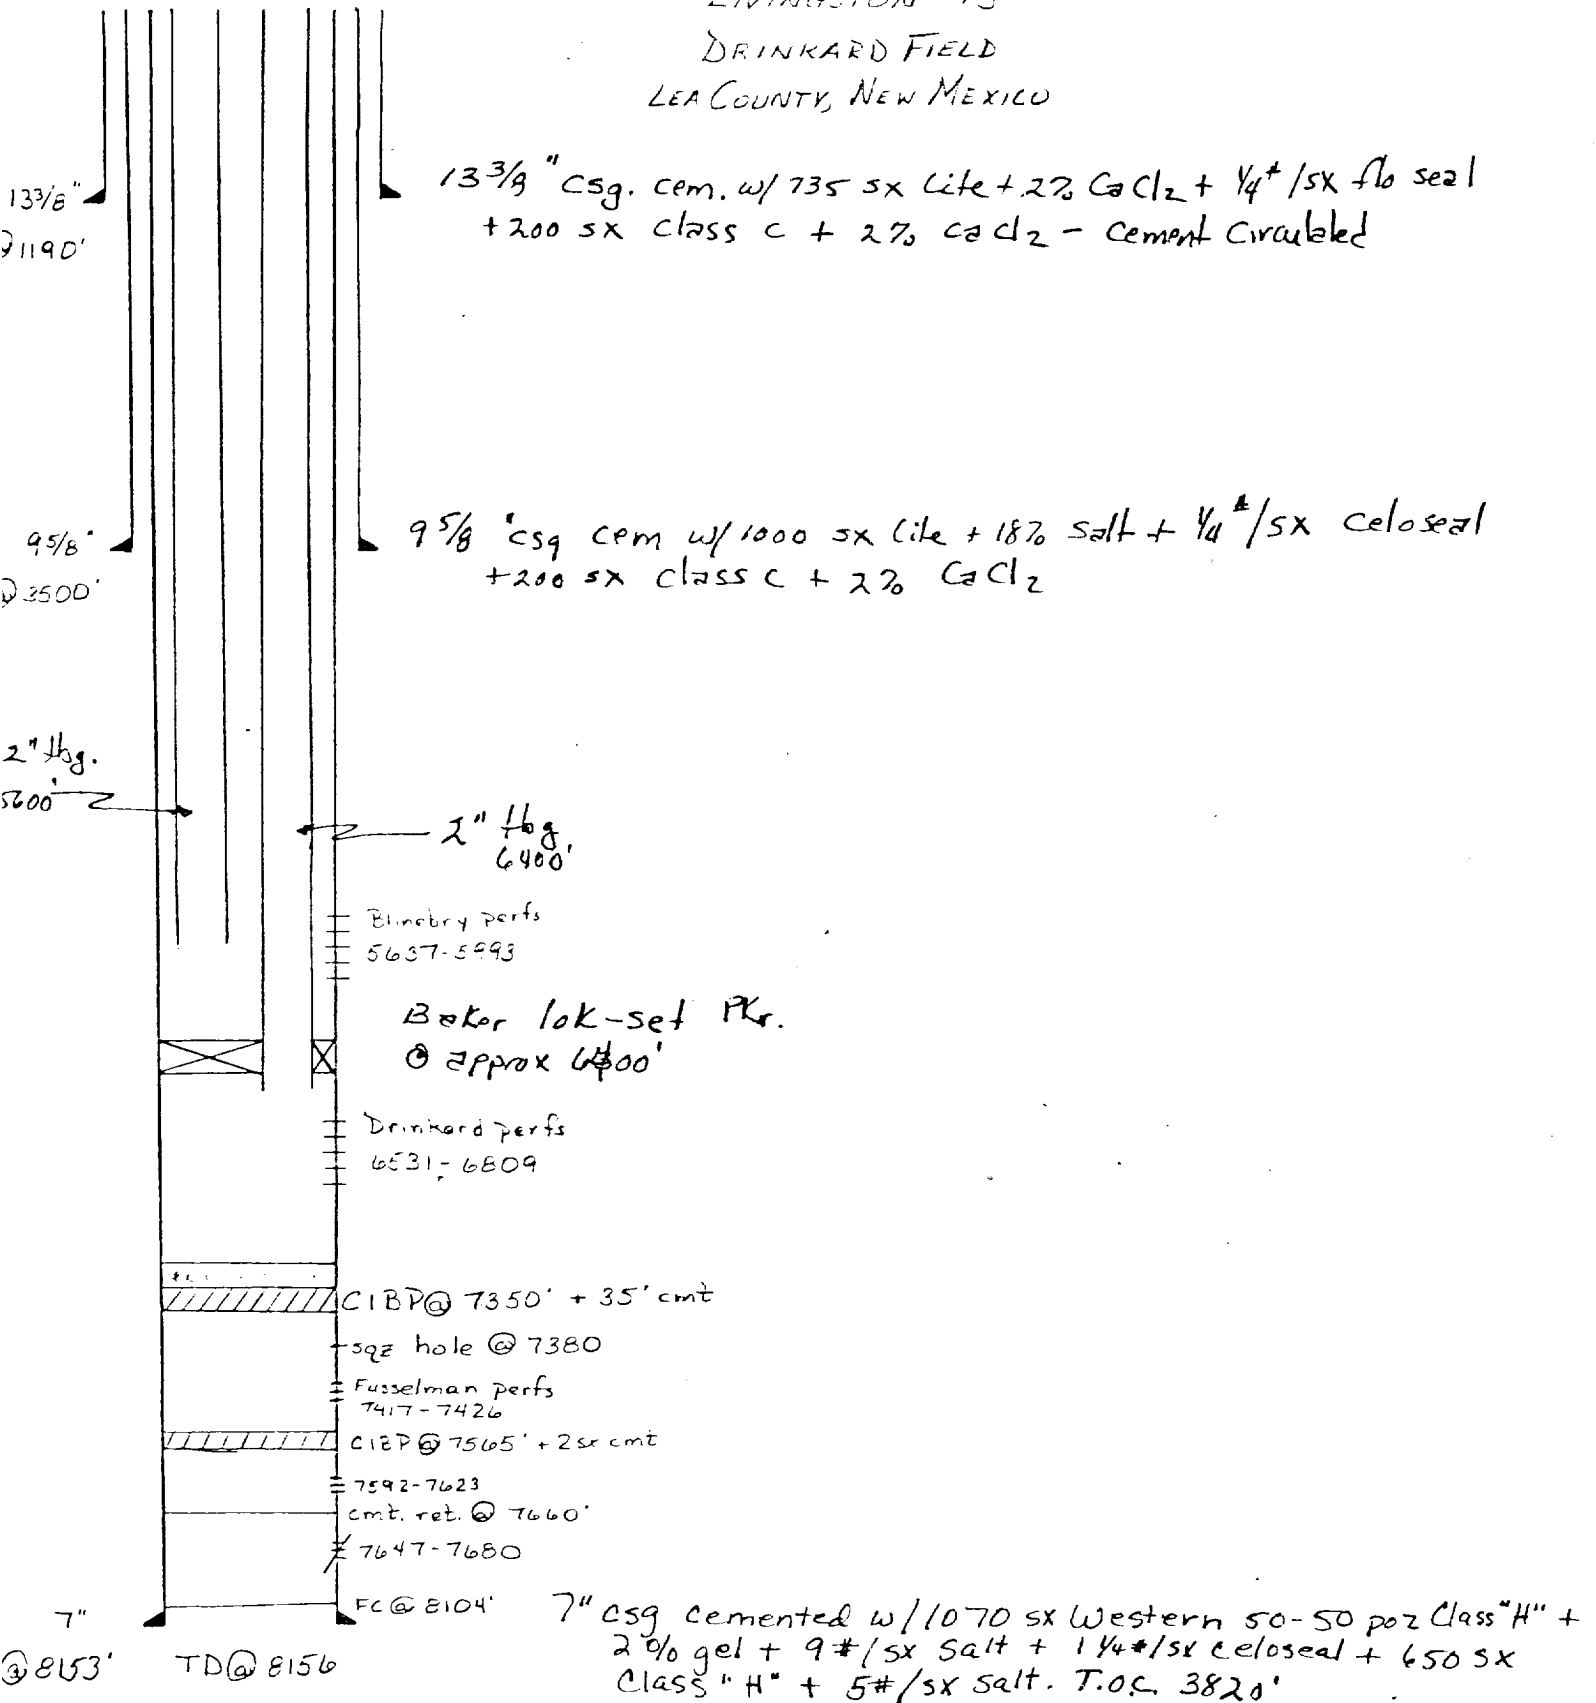 DRINKARD FIELD
LEA COUNTY, NEW MEXICO
13 3/8" csg. cem. w/ 735 sx Lite + 2% CaCl2 + 1/4# /sx flo seal
+ 200 sx class c + 2% cacl2 - Cement Circulated
13 3/8"
@ 1190'
9 5/8" csg cem w/ 1000 sx Lite + 18% salt + 1/4#/sx celoseal
+ 200 sx class c + 2% CaCl2
9 5/8"
@ 3500'
2" tbg.
5600'
2" tbg
6400'
Blinebry perfs
5637-5993
Baker lok-set Pkr.
@ approx
Drinkard perfs
6531-6809
CIBP@ 7350' + 35' cmt
sqz hole @ 7380
Fusselman perfs
7417-7426
CIBP @ 7565' + 2 sx cmt
7592-7623
cmt. ret. @ 7660'
7647-7680
FC @ 8104'
7"
@ 8153'
TD @ 8156
7" csg cemented w/ 1070 sx Western 50-50 poz Class "H" +
2% gel + 9#/sx Salt + 1 1/4#/sx celoseal + 650 sx
Class "H" + 5#/sx salt. T.O.C. 3820'